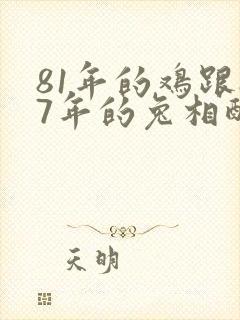 81年的鸡跟
7年的兔相
天明